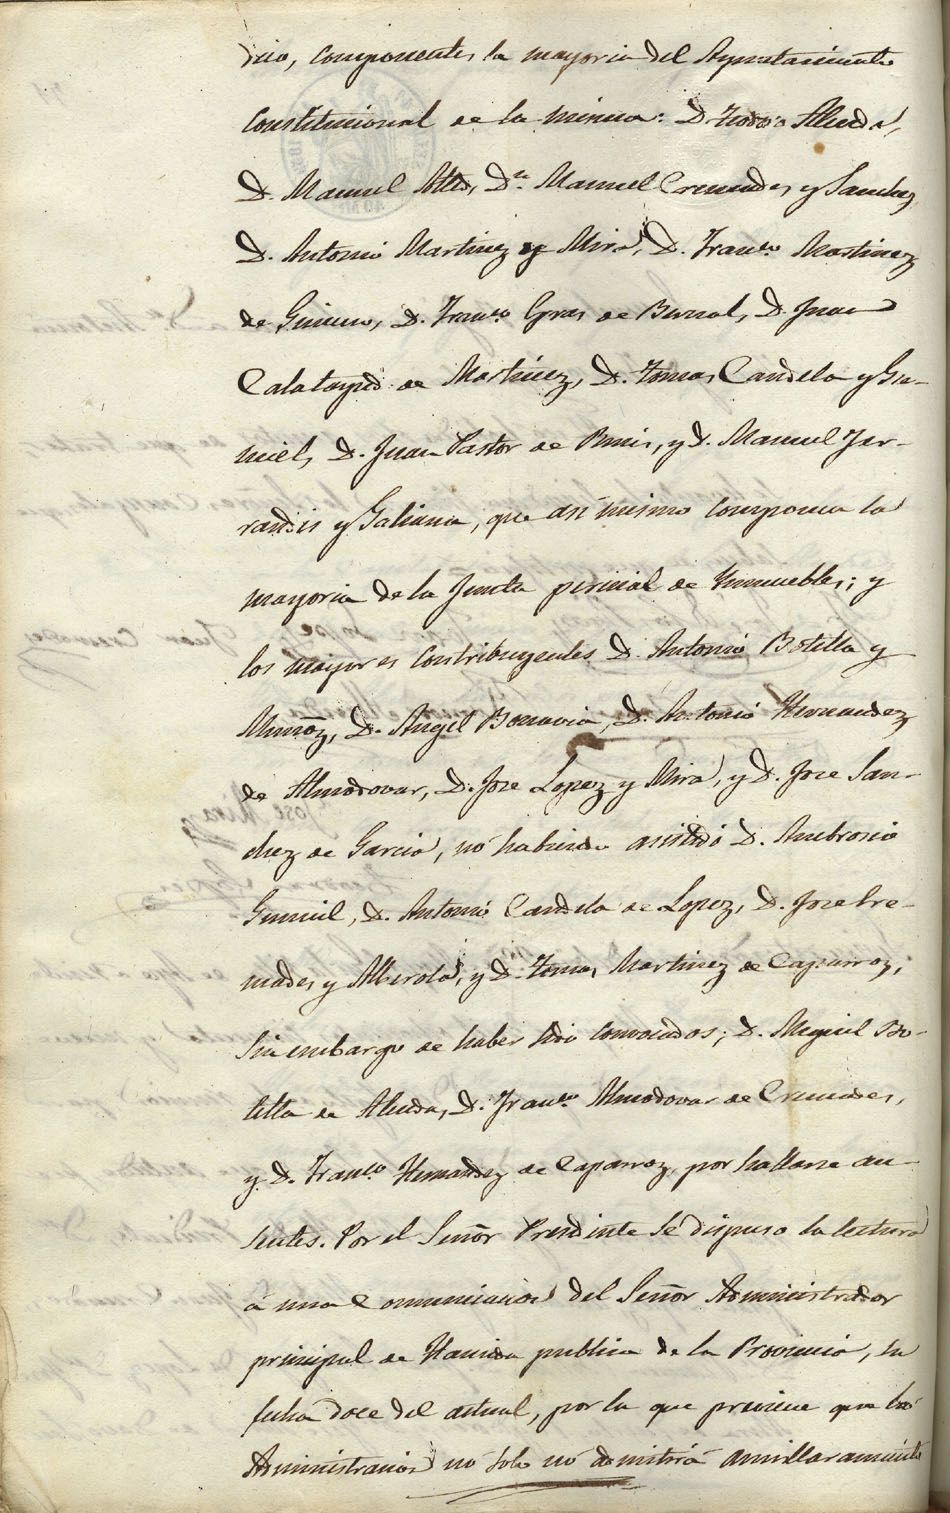 drio, componentes la mayoria del Ayuntamiento
Constitucional de la misma: D. Teodoro Alenda,
D. Manuel Alted, Dn. Manuel Cremades y Sanchez
D. Antonio Martinez y Mira, D. Franco. Martinez
de Gimeno, D. Franco. Gras de Bernal, D. Juan
Calatayud de Martinez, D. Tomas Candela y Gu-
miel, D. Juan Pastor de, y D. Manuel Fer-
randis y Galiana, que asi mismo componen la
mayoria de la Junta pericial de Ynmuebles; y
los mayores contribuyentes D. Antonio Botella y
Muñoz, D. Angel Bonavia, D. Antonio Hernandez
de Almodovar, D. Jose Lopez y Mira, y D. Jose San-
chez de Garcia, nó habiendo asistido D. Ambrosio
Gumiel, D. Antonio Candela de Lopez, D. Jose Cre-
mades y Alberola, y D. Tomas Martinez de Caparroz,
sin embargo de haber sido convocados; D. Miguel Bo-
tella de Alenda, D. Franco. Almodovar de Cremades,
y D. Franco. Hernandez de Caparroz, por hallarse au-
sentes. Por el Señor Presidente se dispuso la lectura
á una comunicacion del Señor Administrador
principal de Hacienda publica de la Provincia, su
fecha doce del actual, por la que previene que la
Administracion nó solo nó admitirá amillaramiento